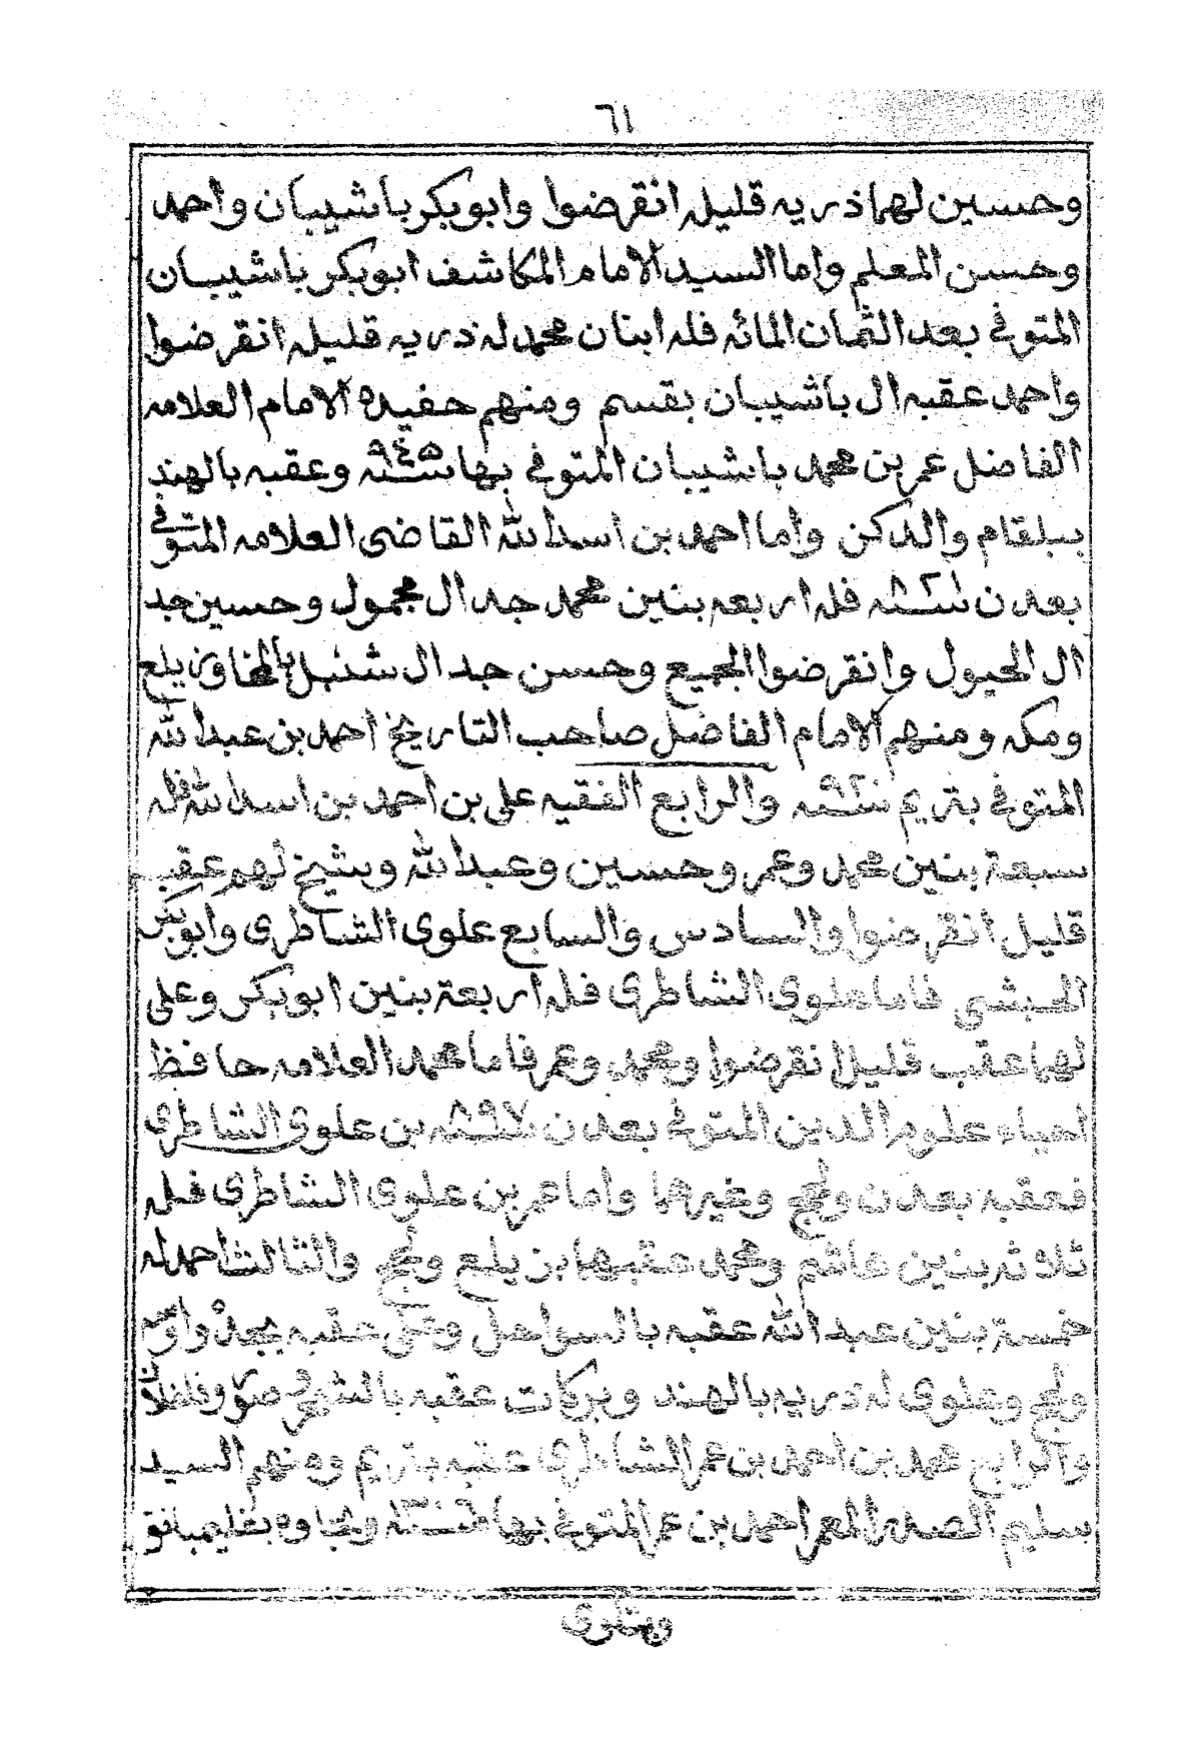 ٦١
وحسين لهما ذريه قليله انقرضوا وابو بكر باشيبان واحمد
وحسن المعلم واما السيد الامام المكاشف ابو بكر باشيبان
المتوفي بعد الثمان المائه فله ابنان محمد له ذريه قليله انقرضوا
واحمد عقبه ال باشيبان بقسم ومنهم حفيده الامام العلامه
الفاضل عمر بن محمد باشيبان المتوفي بها سنه ٩٤٥ وعقبه بالهند
ببلقام والدكن واما احمد بن اسد الله القاضى العلامه المتوفي
بعدن سنه فله اربعه بنين محمد جد ال مجمول وحسين جد
ال الحيول وانقرضوا الجميع وحسن جد ال شنبل يلع
ومكه ومنهم الامام الفاضل صاحب التاريخ احمد بن عبد الله
المتوفي بتريم سنه ٩٢٠ والرابع الفقيه علي بن احمد بن اسد الله فله
سبعة بنين محمد وعمر وحسين وعبد الله وشيخ لهم عقب
قليل انقرضوا والسادس والسابع علوى الشاطرى وابوبكر
الحبشي فاما علوى الشاطرى فله اربعة بنين ابوبكر وعلى
لهما عقب قليل انقرضوا ومحمد وعمر فاما محمد العلامه حافظ
احياء علوم الدين المتوفي بعدن سنه ٨٩٧ بن علوى الشاطرى
فعقبه بعدن ولحج وغيرهما واما عمر بن علوى الشاطرى فله
ثلاثه بنين هاشم ومحمد عقبهما بن يلع ولحج والثالث احمد له
خمسة بنين عبد الله عقبه بالسواحل وعلى عقبه
ولحج وعلوى له ذريه بالهند وبركات عقبه بالشحر
والرابع محمد بن احمد بن عمر الشاطرى عقبه بتريم ومنهم السيد
سليم الصدر المعمر احمد بن عمر المتوفي بها سنه وبجاوه بفليمبانق
وبتلوى